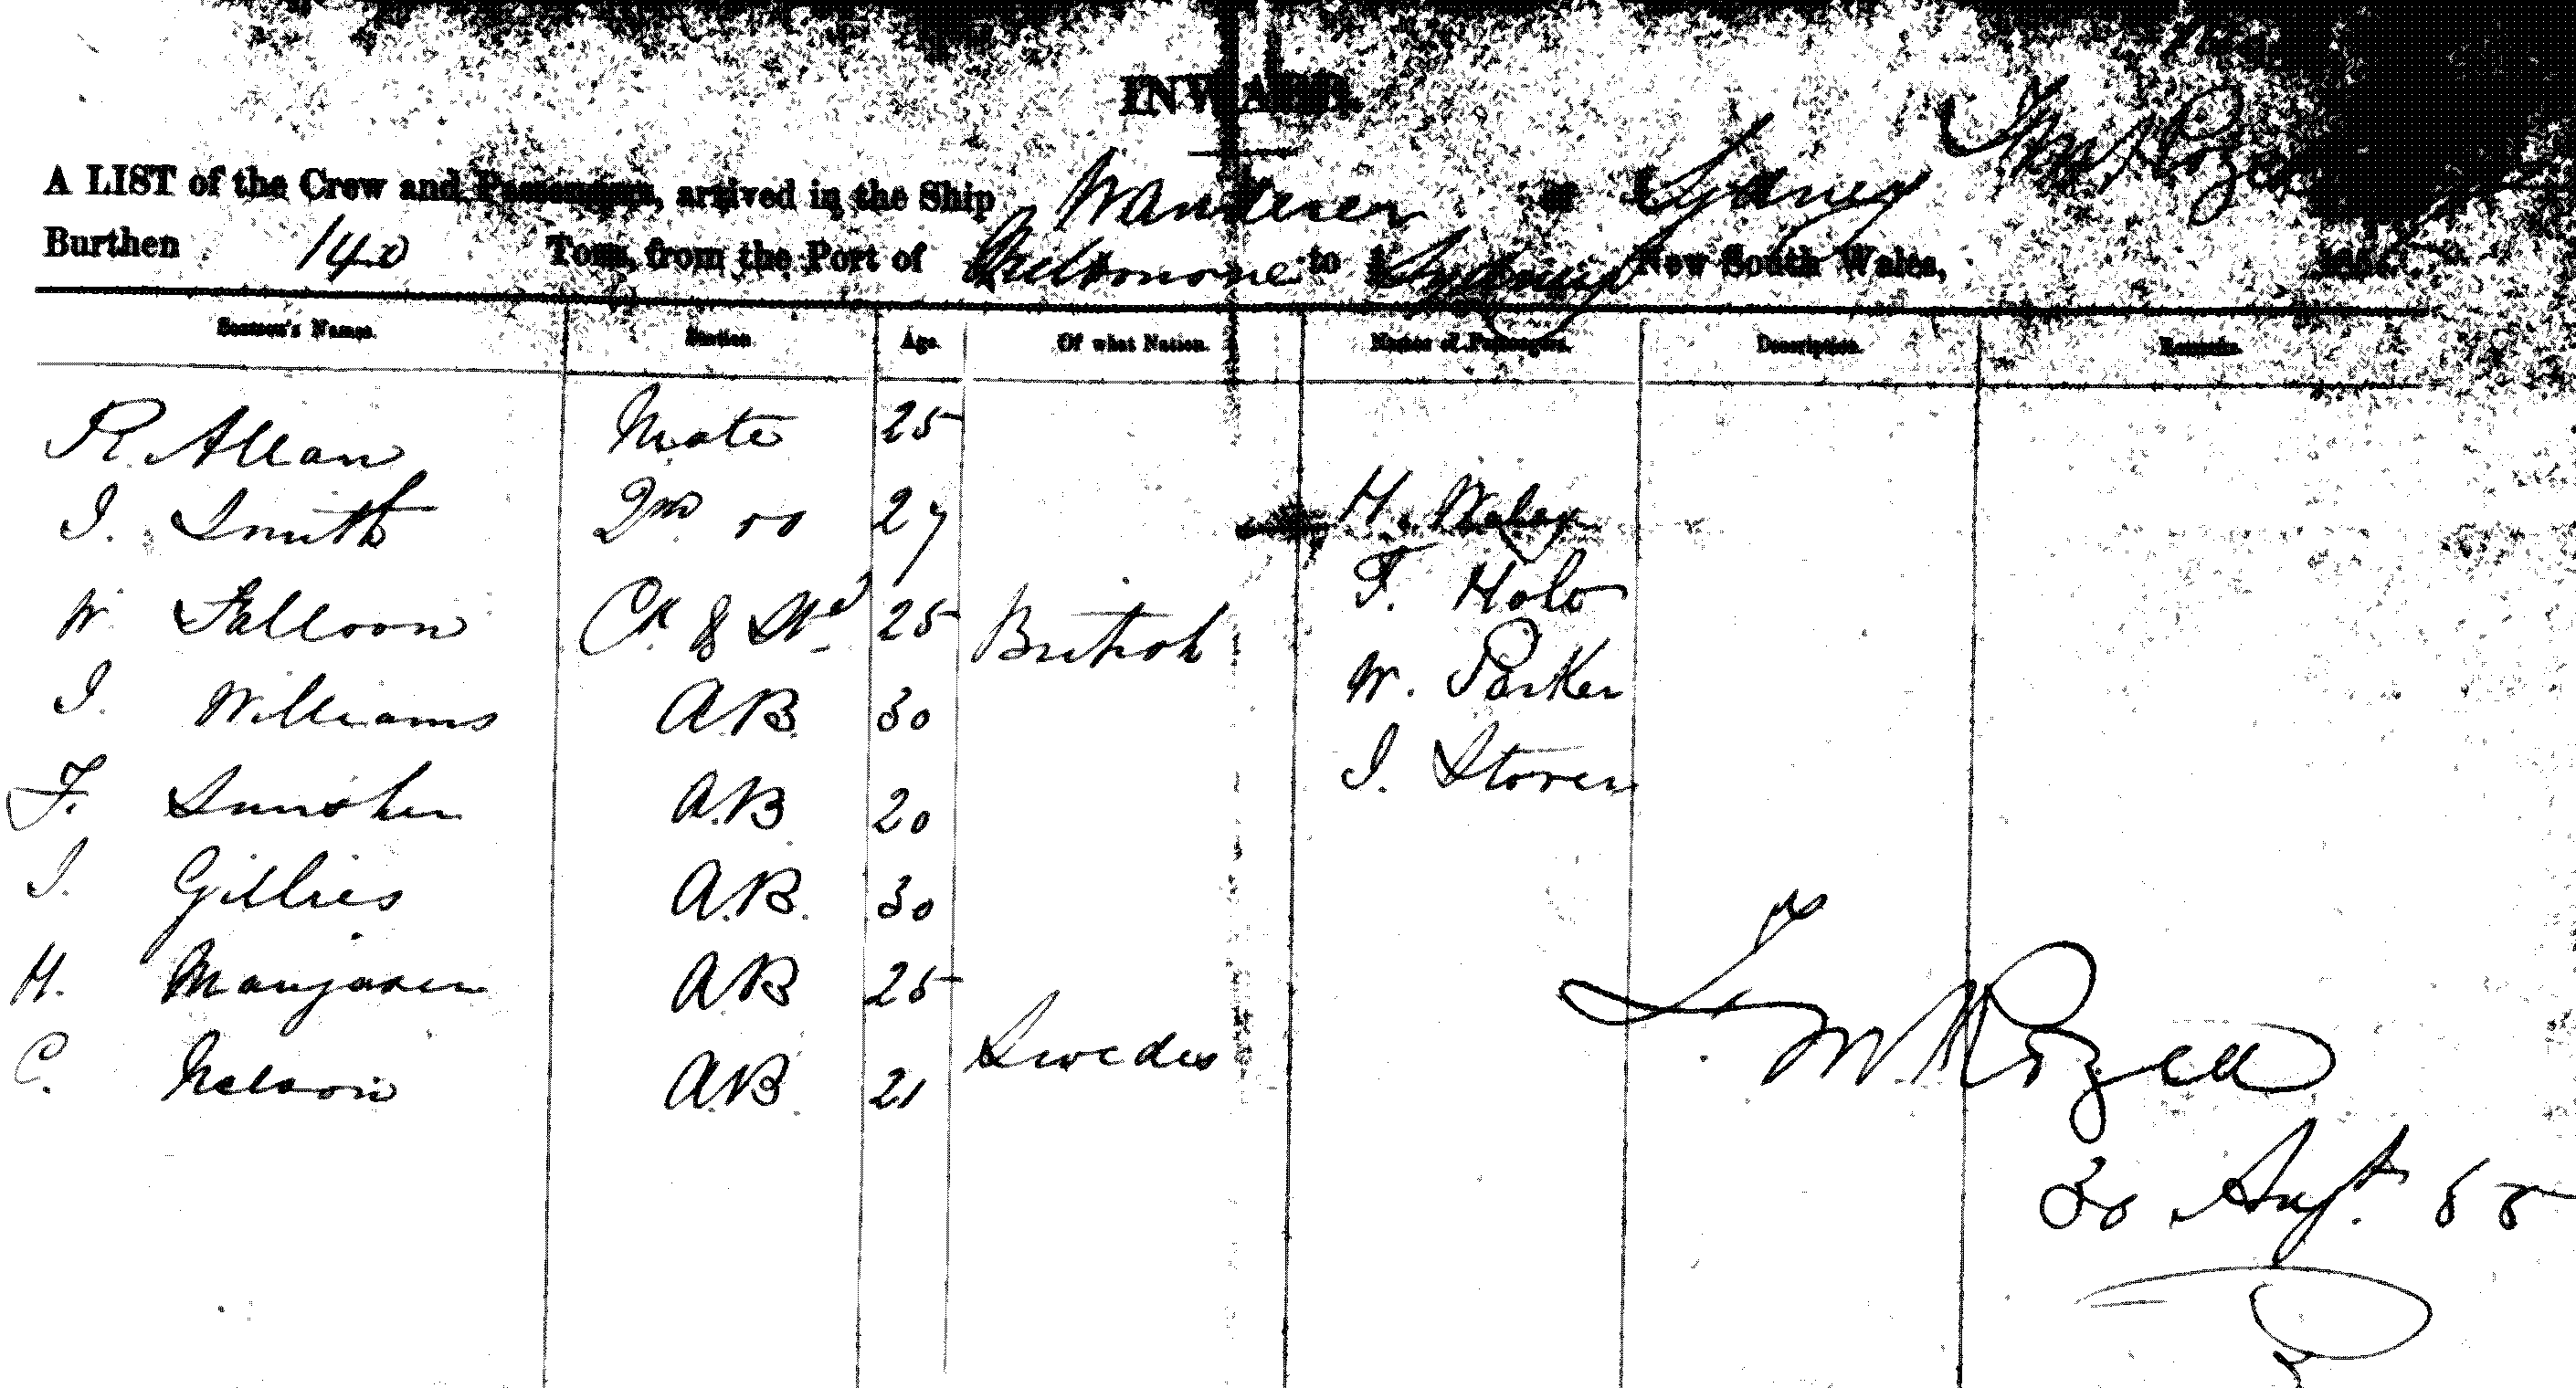 INWARD.
A LIST of the Crew and Passengers, arrived in the Ship Wanderer of Sydney
Burthen 140 Tons, from the Port of to Sydney New South Wales,
Seamen's Names. Station Age. Of what Nation. Names of Passengers. Description. Remarks.
R. Allan Mate 25
I. Smith 2nd do 27 H.
W Falloon Ck & Std 25 British F. Holo
I. Williams A.B. 30 W. Parker
F. A.B 20 I.
I. Gillies A.B. 30
H. A.B 25
C. Nelson A.B. 21 Swedes
30 Augt. 55